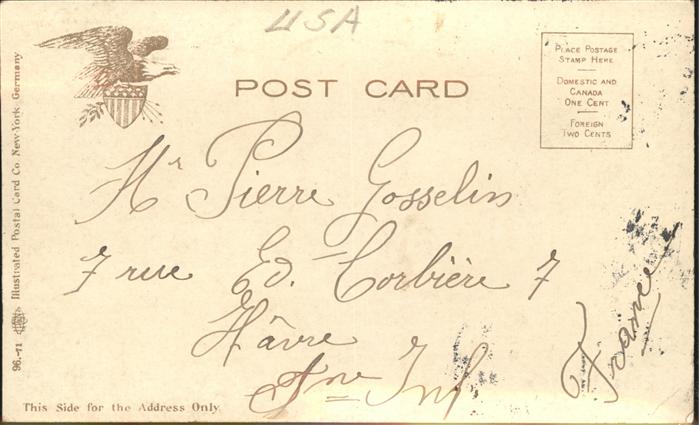 USA
POST CARD
PLACE POSTAGE
STAMP HERE
DOMESTIC AND
CANADA
ONE CENT
FOREIGN
TWO CENTS
Mr Pierre Gosselin
7 rue Ed. Corbière 7
Hâvre
Sne Inf
France
96.-71 Illustrated Postal Card Co. New-York Germany
This Side for the Address Only.